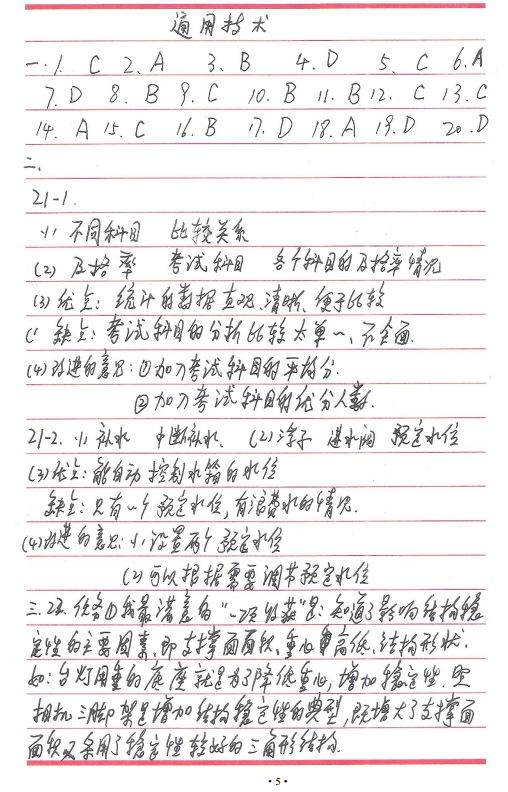 通用技术
一.1. C 2. A 3. B 4. D 5. C 6. A
7. D 8. B 9. C 10. B 11. B 12. C 13. C
14. A 15. C 16. B 17. D 18. A 19. D 20. D
二、
21-1.
(1) 不同科目 比较关系
(2) 及格率 考试科目 各个科目的及格率情况
(3) 优点: 统计的数据直观、清晰、便于比较
缺点: 考试科目的分析比较太单一、不全面.
(4) 改进的意见: ①加入考试科目的平均分.
②加入考试科目的优分人数.
21-2. (1) 补水 中断补水. (2) 浮子 进水阀 预定水位
(3) 优点: 能自动控制水箱的水位
缺点: 只有一个预定水位, 有浪费水的情况.
(4) 改进的意见: (1) 设置两个预定水位
(2) 可以根据需要调节预定水位
三. 22. 任务① 我最满意的“一项收获”是: 知道了影响结构稳
定性的主要因素, 即支撑面面积、重心高低、结构形状.
如: 台灯用重的底座就是为了降低重心, 增加稳定性. 照
相机三脚架是增加结构稳定性的典型, 既增大了支撑面
面积又采用了稳定性较好的三角形结构.
·5·